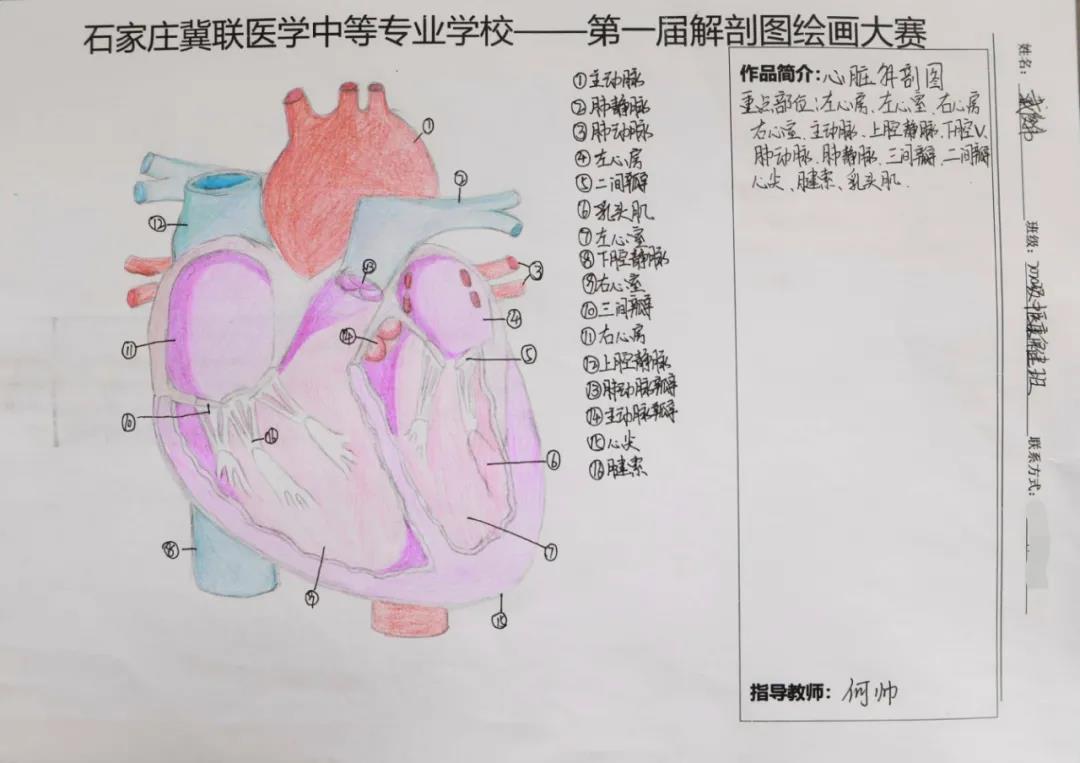 石家庄冀联医学中等专业学校——第一届解剖图绘画大赛
①主动脉
②肺静脉
③肺动脉
④左心房
⑤二间瓣
⑥乳头肌
⑦左心室
⑧下腔静脉
⑨右心室
⑩三间瓣
⑪右心房
⑫上腔静脉
⑬肺动脉瓣
⑭主动脉瓣
⑮心尖
⑯腱索
作品简介：心脏解剖图
重点部位：左心房、左心室、右心房
右心室、主动脉、上腔静脉、下腔V、
肺动脉、肺静脉、三间瓣、二间瓣
心尖、腱索、乳头肌.
指导教师：何帅
姓名：
班级：
联系方式：
①
②
③
④
⑤
⑥
⑦
⑧
⑨
⑩
⑪
⑫
⑬
⑭
⑮
⑯